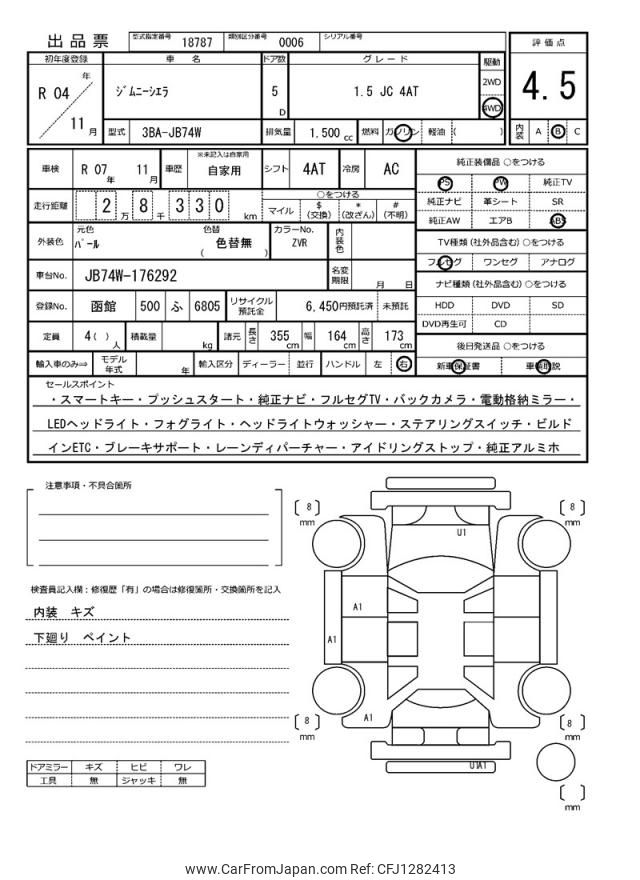 出品票
型式指定番号 18787 類別区分番号 0006 シリアル番号
評価点
4.5
初年度登録 車 名 ドア数 グレード 駆動
R 04 年 11 月
ジムニーシエラ 5 D 1.5 JC 4AT 2WD 4WD
型式 3BA-JB74W 排気量 1.500 cc 燃料 ガソリン 軽油 ( )
内装 A B C
車検 R 07 年 11 月 車歴 ※未記入は自家用 自家用 シフト 4AT 冷房 AC
純正装備品 ○をつける
PS PW 純正TV
純正ナビ 革シート SR
純正AW エアB ABS
走行距離 2 万 8 千 3 3 0 km
○をつける
マイル $ (交換) * (改ざん) # (不明)
外装色 元色 パール 色替 ( 色替無 ) カラーNo. ZVR 内装色
TV種類 (社外品含む) ○をつける
フルセグ ワンセグ アナログ
車台No. JB74W-176292 名変期限 月 日
ナビ種類 (社外品含む) ○をつける
HDD DVD SD
DVD再生可 CD
登録No. 函館 500 ふ 6805 リサイクル預託金 6,450円預託済 未預託
定員 4( ) 人 積載量 kg 諸元 長さ 355 cm 幅 164 cm 高さ 173 cm
後日発送品 ○をつける
新車保証書 車輌取説
輸入車のみ⇒ モデル年式 年 輸入区分 ディーラー 並行 ハンドル 左 右
セールスポイント
・スマートキー・プッシュスタート・純正ナビ・フルセグTV・バックカメラ・電動格納ミラー・
LEDヘッドライト・フォグライト・ヘッドライトウォッシャー・ステアリングスイッチ・ビルド
インETC・ブレーキサポート・レーンディパーチャー・アイドリングストップ・純正アルミホ
注意事項・不具合箇所
検査員記入欄：修復歴「有」の場合は修復箇所・交換箇所を記入
内装 キズ
下廻り ペイント
8 mm
8 mm
U1
A1
A1
A1
8 mm
8 mm
U1A1
mm
ドアミラー キズ ヒビ ワレ
工具 無 ジャッキ 無
www.CarFromJapan.com Ref: CFJ1282413